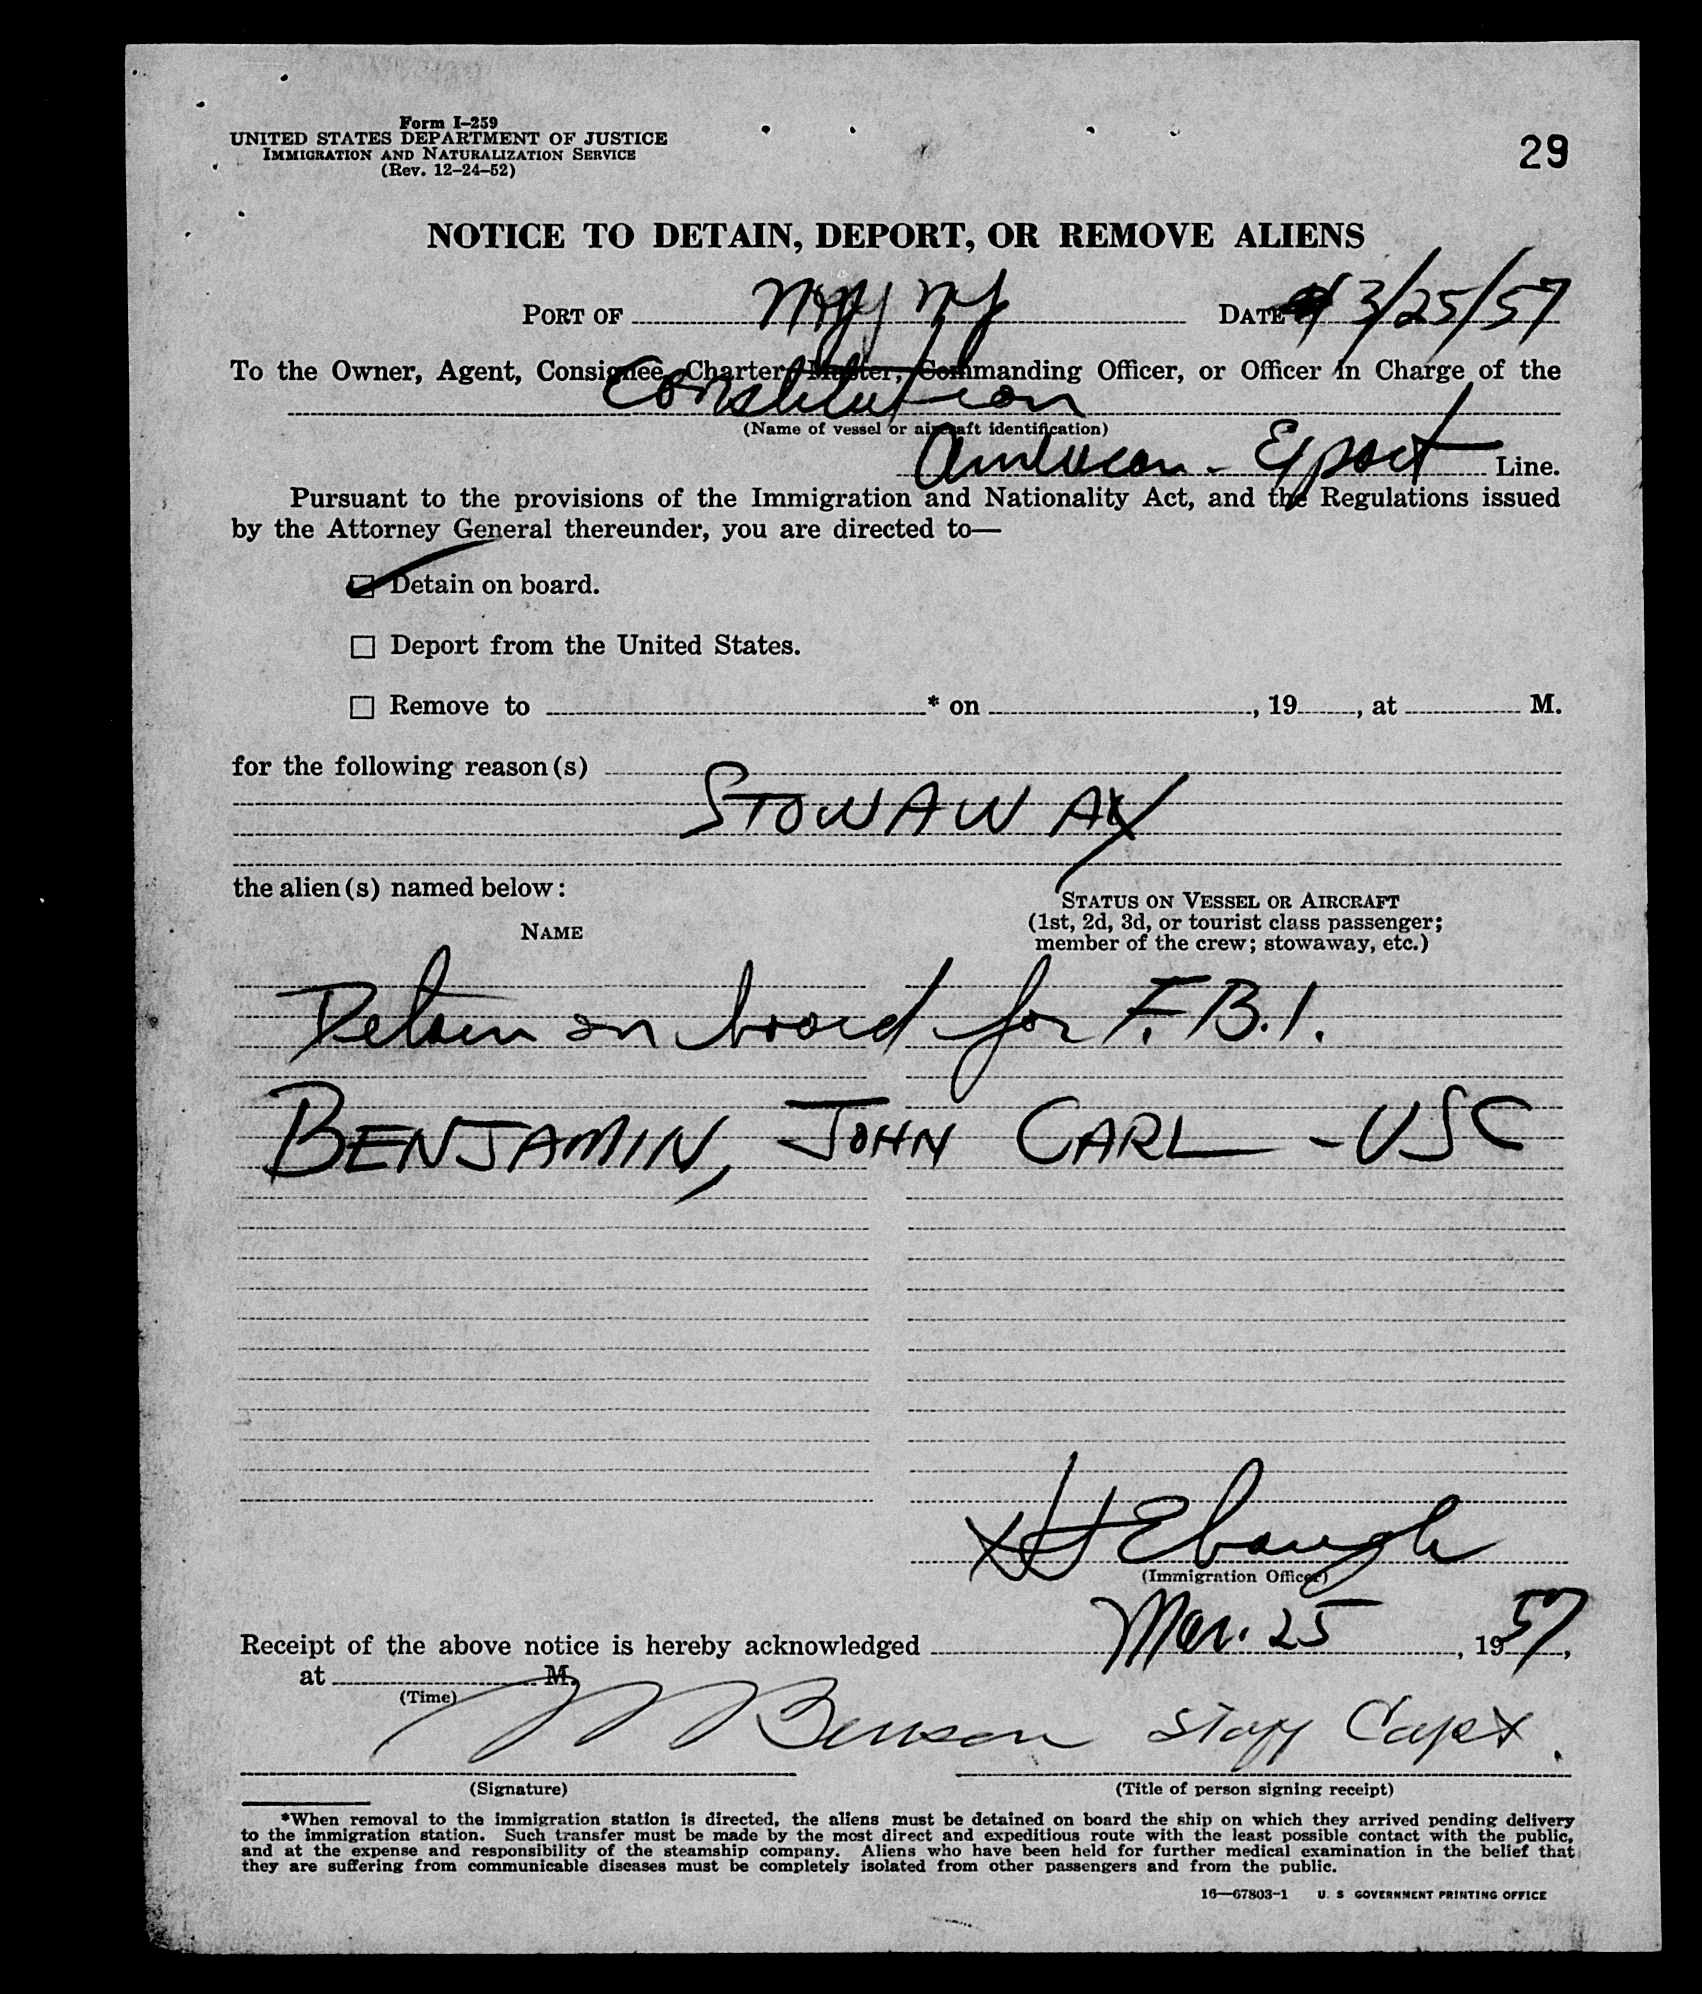 Form I-259
UNITED STATES DEPARTMENT OF JUSTICE
IMMIGRATION AND NATURALIZATION SERVICE
(Rev. 12-24-52)
29
NOTICE TO DETAIN, DEPORT, OR REMOVE ALIENS
PORT OF NY NY DATE 3/25/57
To the Owner, Agent, Consignee, Charter, Master, Commanding Officer, or Officer in Charge of the
Constitution
(Name of vessel or aircraft identification)
American - Export Line.
Pursuant to the provisions of the Immigration and Nationality Act, and the Regulations issued
by the Attorney General thereunder, you are directed to—
☑ Detain on board.
☐ Deport from the United States.
☐ Remove to * on , 19 , at M.
for the following reason(s)
STOWAWAY
the alien(s) named below:
STATUS ON VESSEL OR AIRCRAFT
(1st, 2d, 3d, or tourist class passenger;
member of the crew; stowaway, etc.)
NAME
Detain on board for F.B.I.
BENJAMIN, JOHN CARL - USC
Ebaugh
(Immigration Officer)
Receipt of the above notice is hereby acknowledged Mar. 25, 1957,
at M.
(Time)
Benson Staff Capt.
(Signature) (Title of person signing receipt)
*When removal to the immigration station is directed, the aliens must be detained on board the ship on which they arrived pending delivery
to the immigration station. Such transfer must be made by the most direct and expeditious route with the least possible contact with the public,
and at the expense and responsibility of the steamship company. Aliens who have been held for further medical examination in the belief that
they are suffering from communicable diseases must be completely isolated from other passengers and from the public.
16—67803-1 U. S GOVERNMENT PRINTING OFFICE